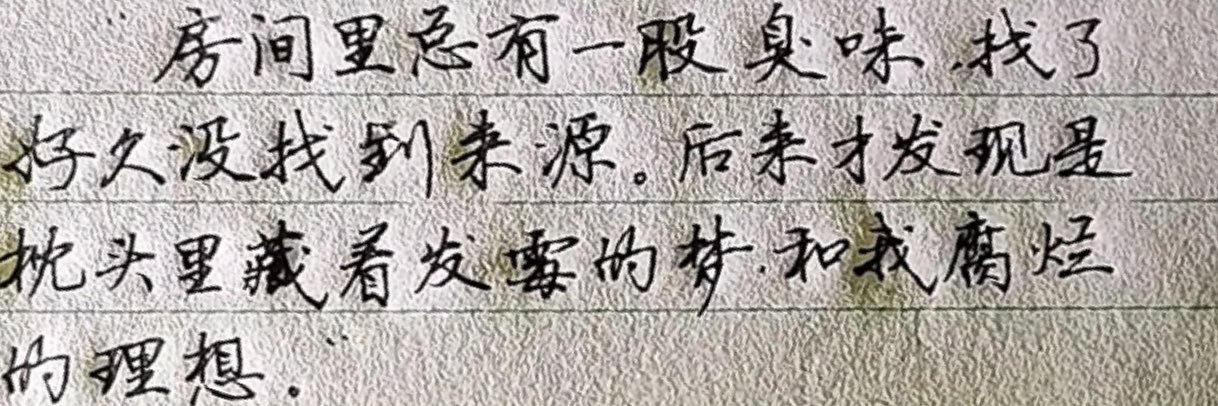 房间里总有一股臭味.找了
好久没找到来源。后来才发现是
枕头里藏着发霉的梦.和我腐烂
的理想.¨